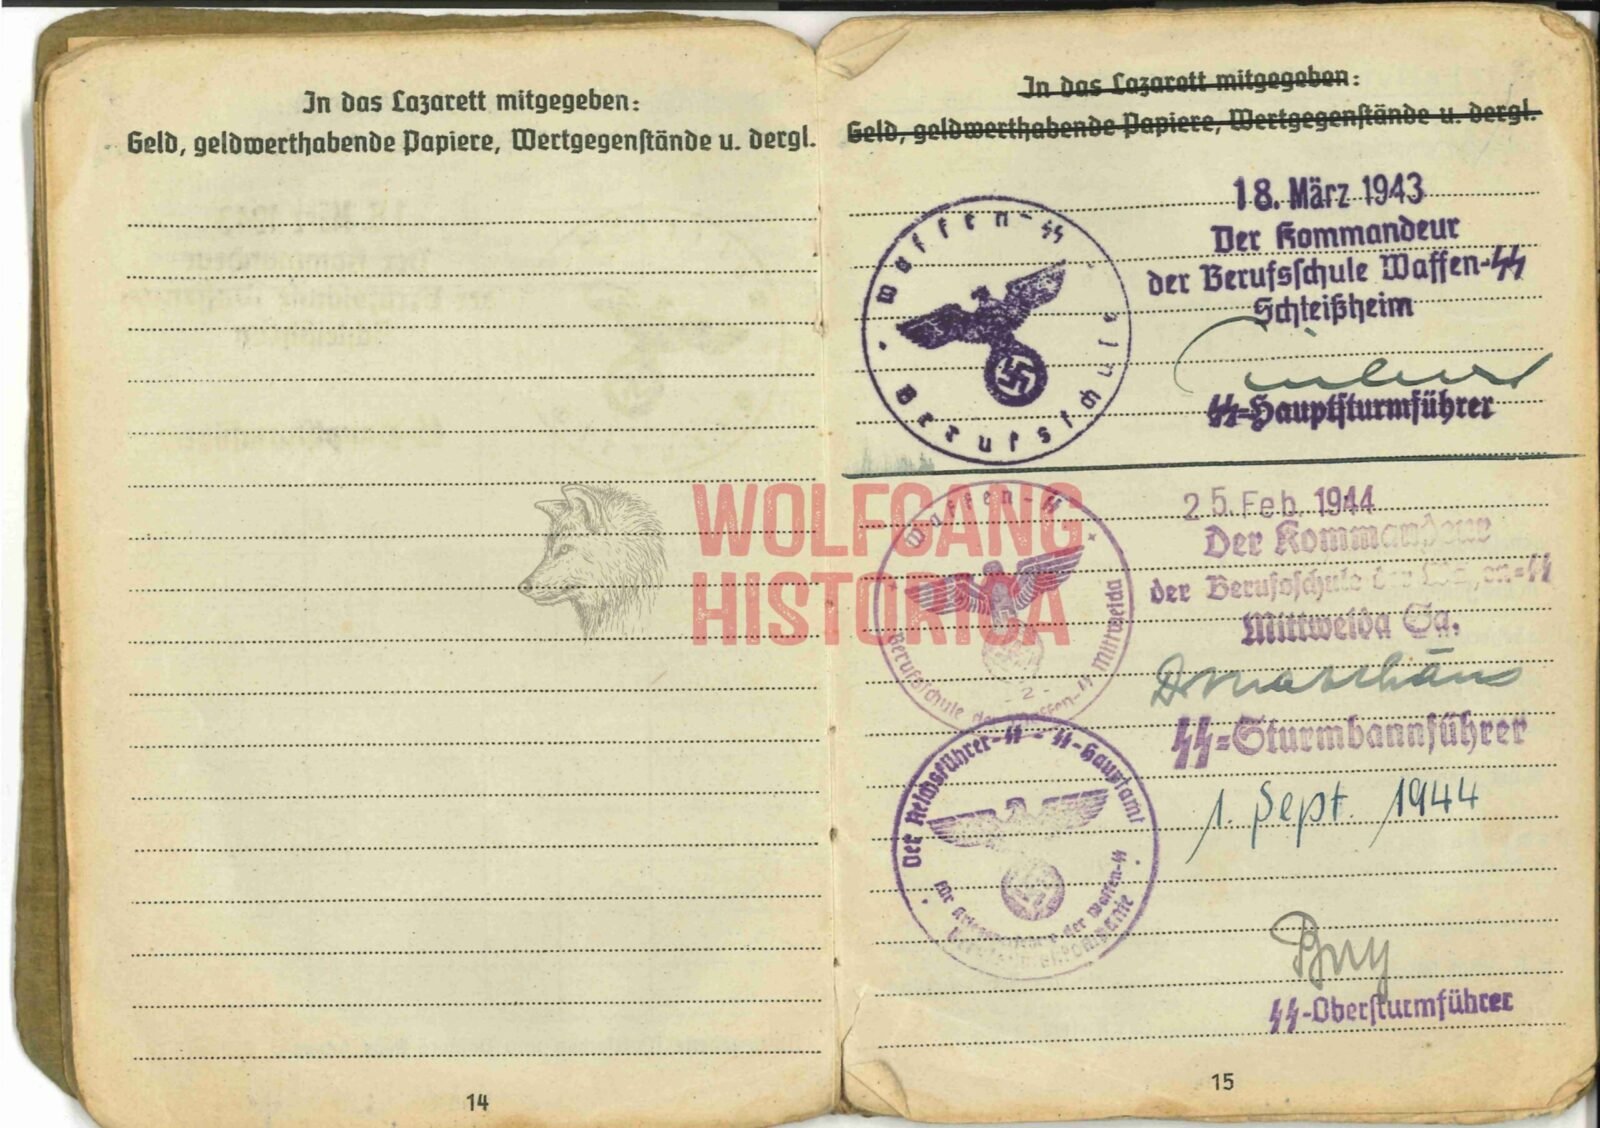 In das Lazarett mitgegeben:
Geld, geldwerthabende Papiere, Wertgegenstände u. dergl.
14
In das Lazarett mitgegeben:
Geld, geldwerthabende Papiere, Wertgegenstände u. dergl.
Waffen-SS
Berufsschule
18. März 1943
Der Kommandeur
der Berufsschule Waffen-SS
Schleißheim
SS-Hauptsturmführer
WOLFGANG
HISTORICA
Waffen-SS
Berufsschule der Waffen-SS Mittweida
- 2 -
25. Feb. 1944
Der Kommandeur
der Berufsschule der Waffen-SS
Mittweida Sa.
SS-Sturmbannführer
Der Reichsführer-SS - SS-Hauptamt
der Waffen-SS
1. Sept. 1944
SS-Obersturmführer
15